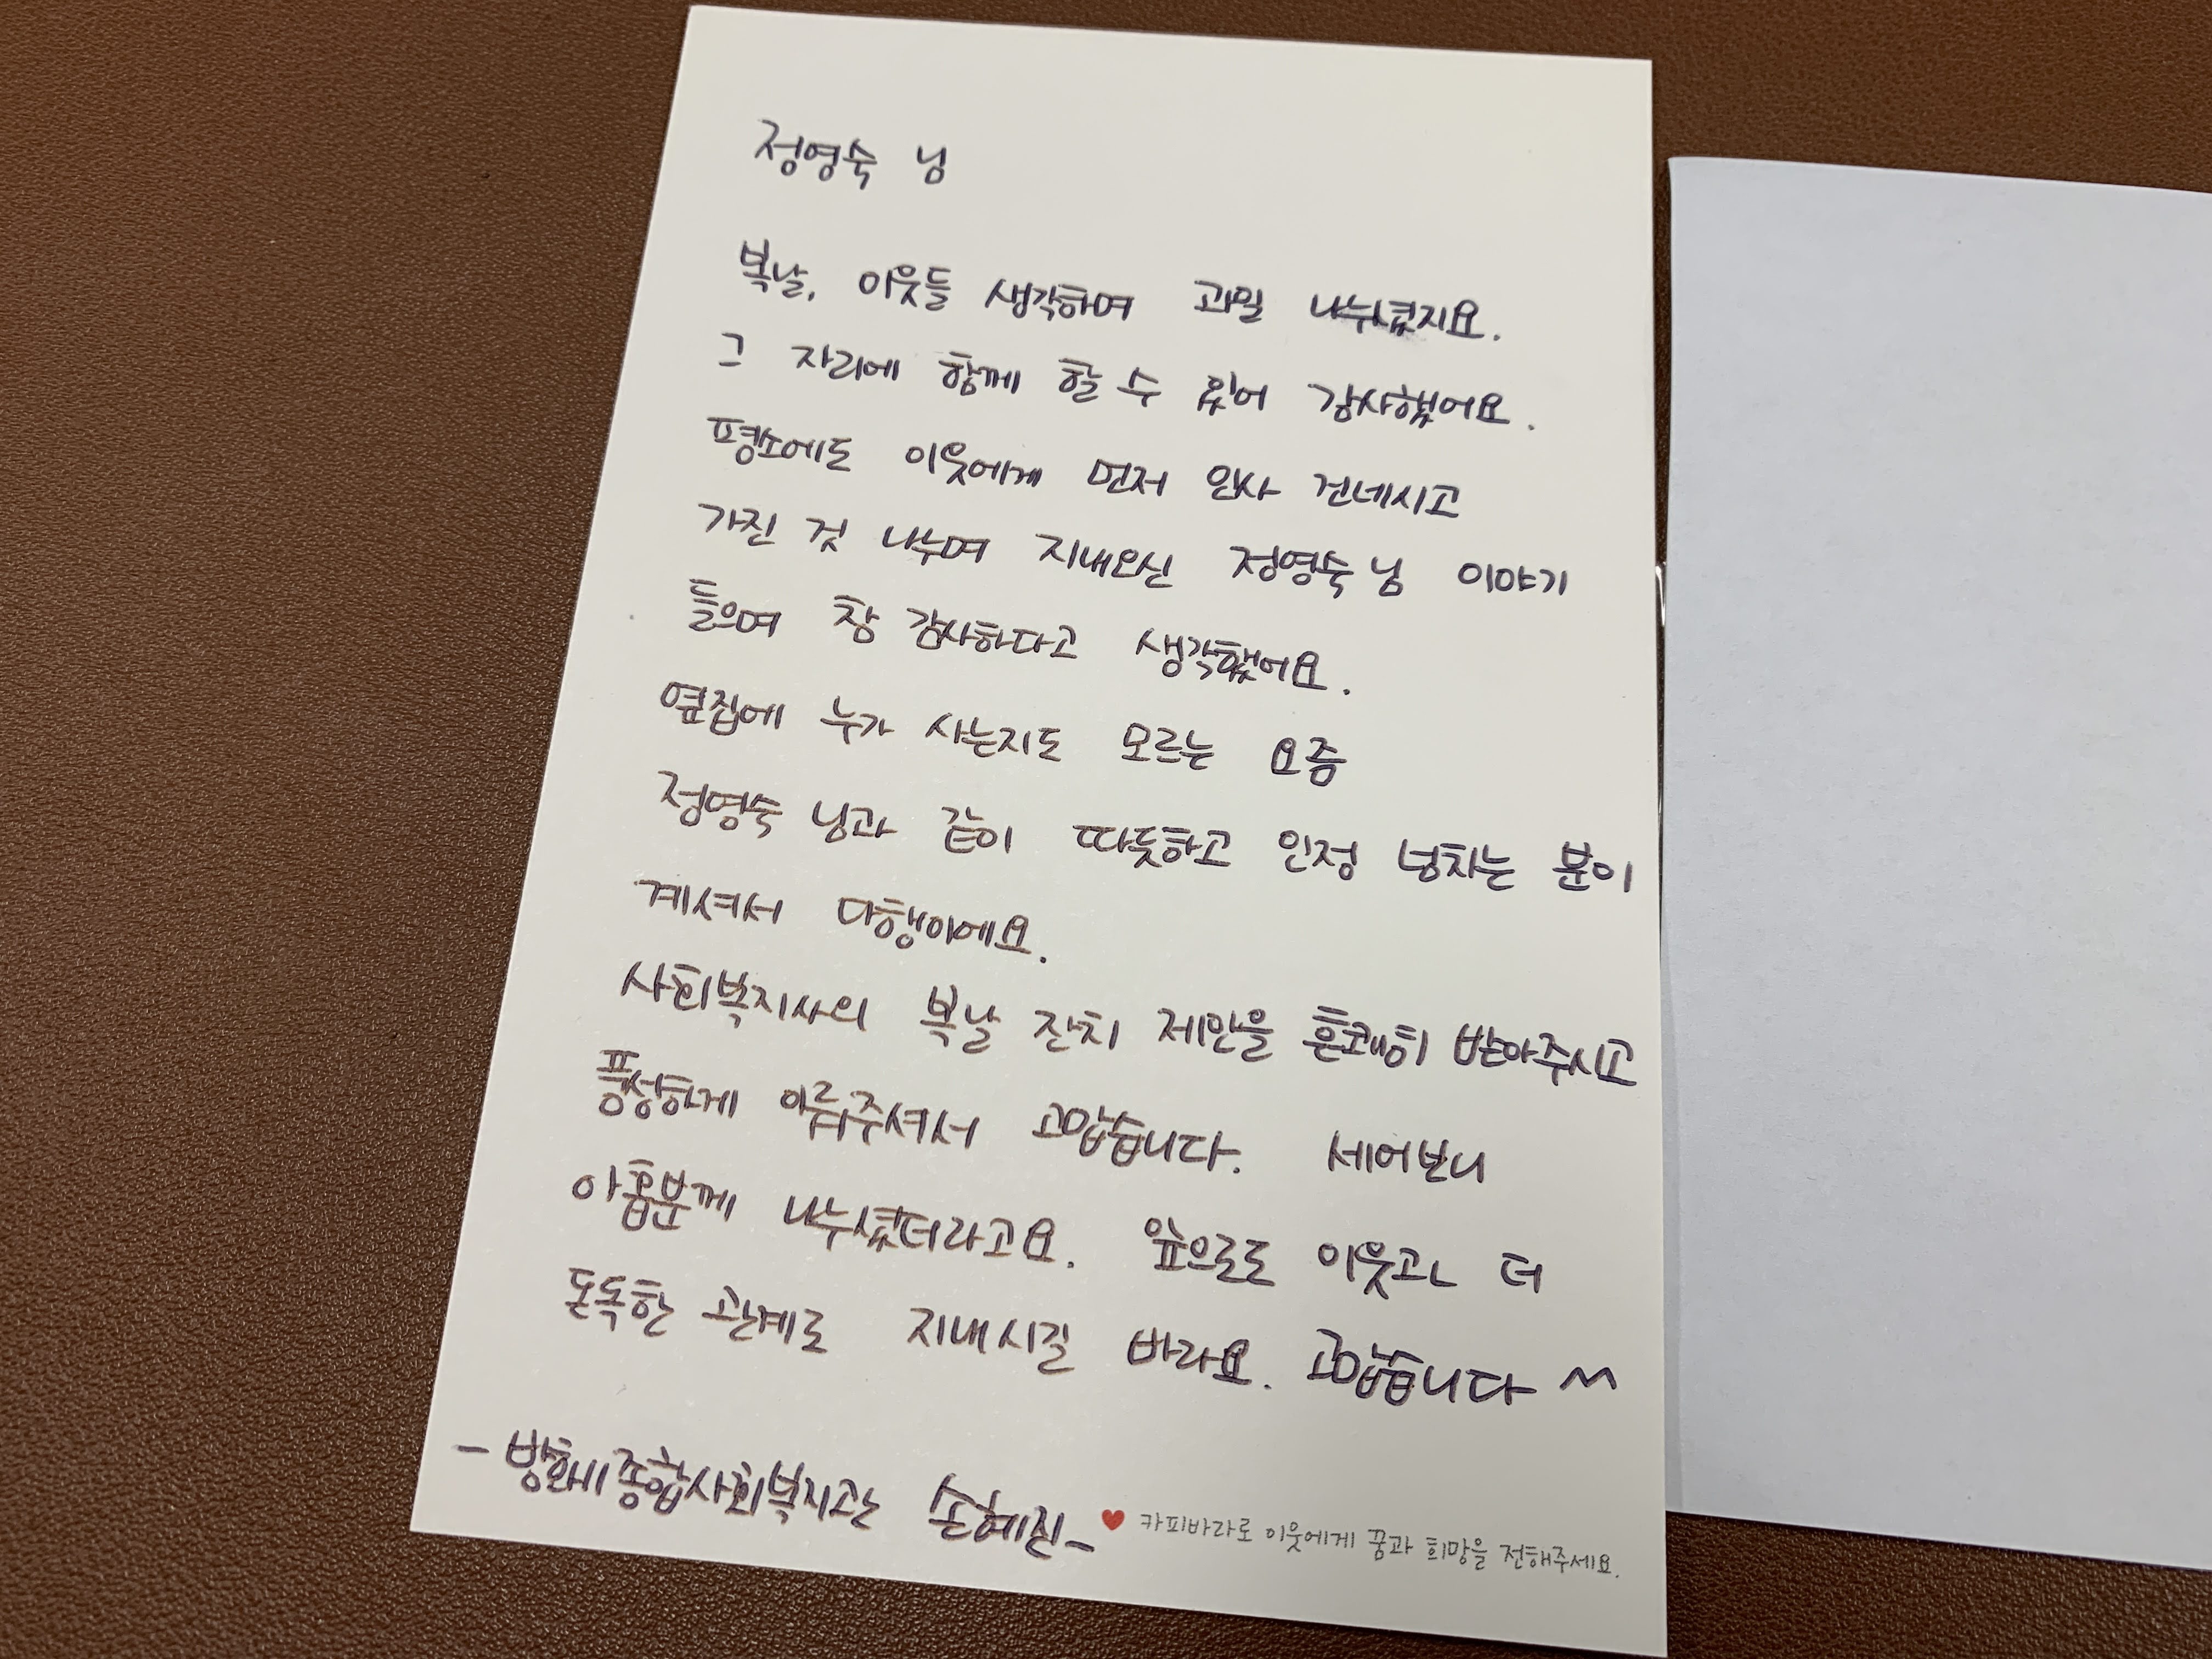 정영숙 님
복날, 이웃들 생각하며 과일 나누셨지요.
그 자리에 함께 할 수 있어 감사했어요.
평소에도 이웃에게 먼저 인사 건네시고
가진 것 나누며 지내오신 정영숙 님 이야기
들으며 참 감사하다고 생각했어요.
옆집에 누가 사는지도 모르는 요즘
정영숙 님과 같이 따뜻하고 인정 넘치는 분이
계셔서 다행이에요.
사회복지사의 복날 잔치 제안을 흔쾌히 받아주시고
풍성하게 이뤄주셔서 고맙습니다. 세어보니
아홉분께 나누셨더라고요. 앞으로도 이웃과 더
돈독한 관계로 지내시길 바라요. 고맙습니다 ^^
- 방화11종합사회복지관 손혜진 -
♥ 카피바라로 이웃에게 꿈과 희망을 전해주세요.